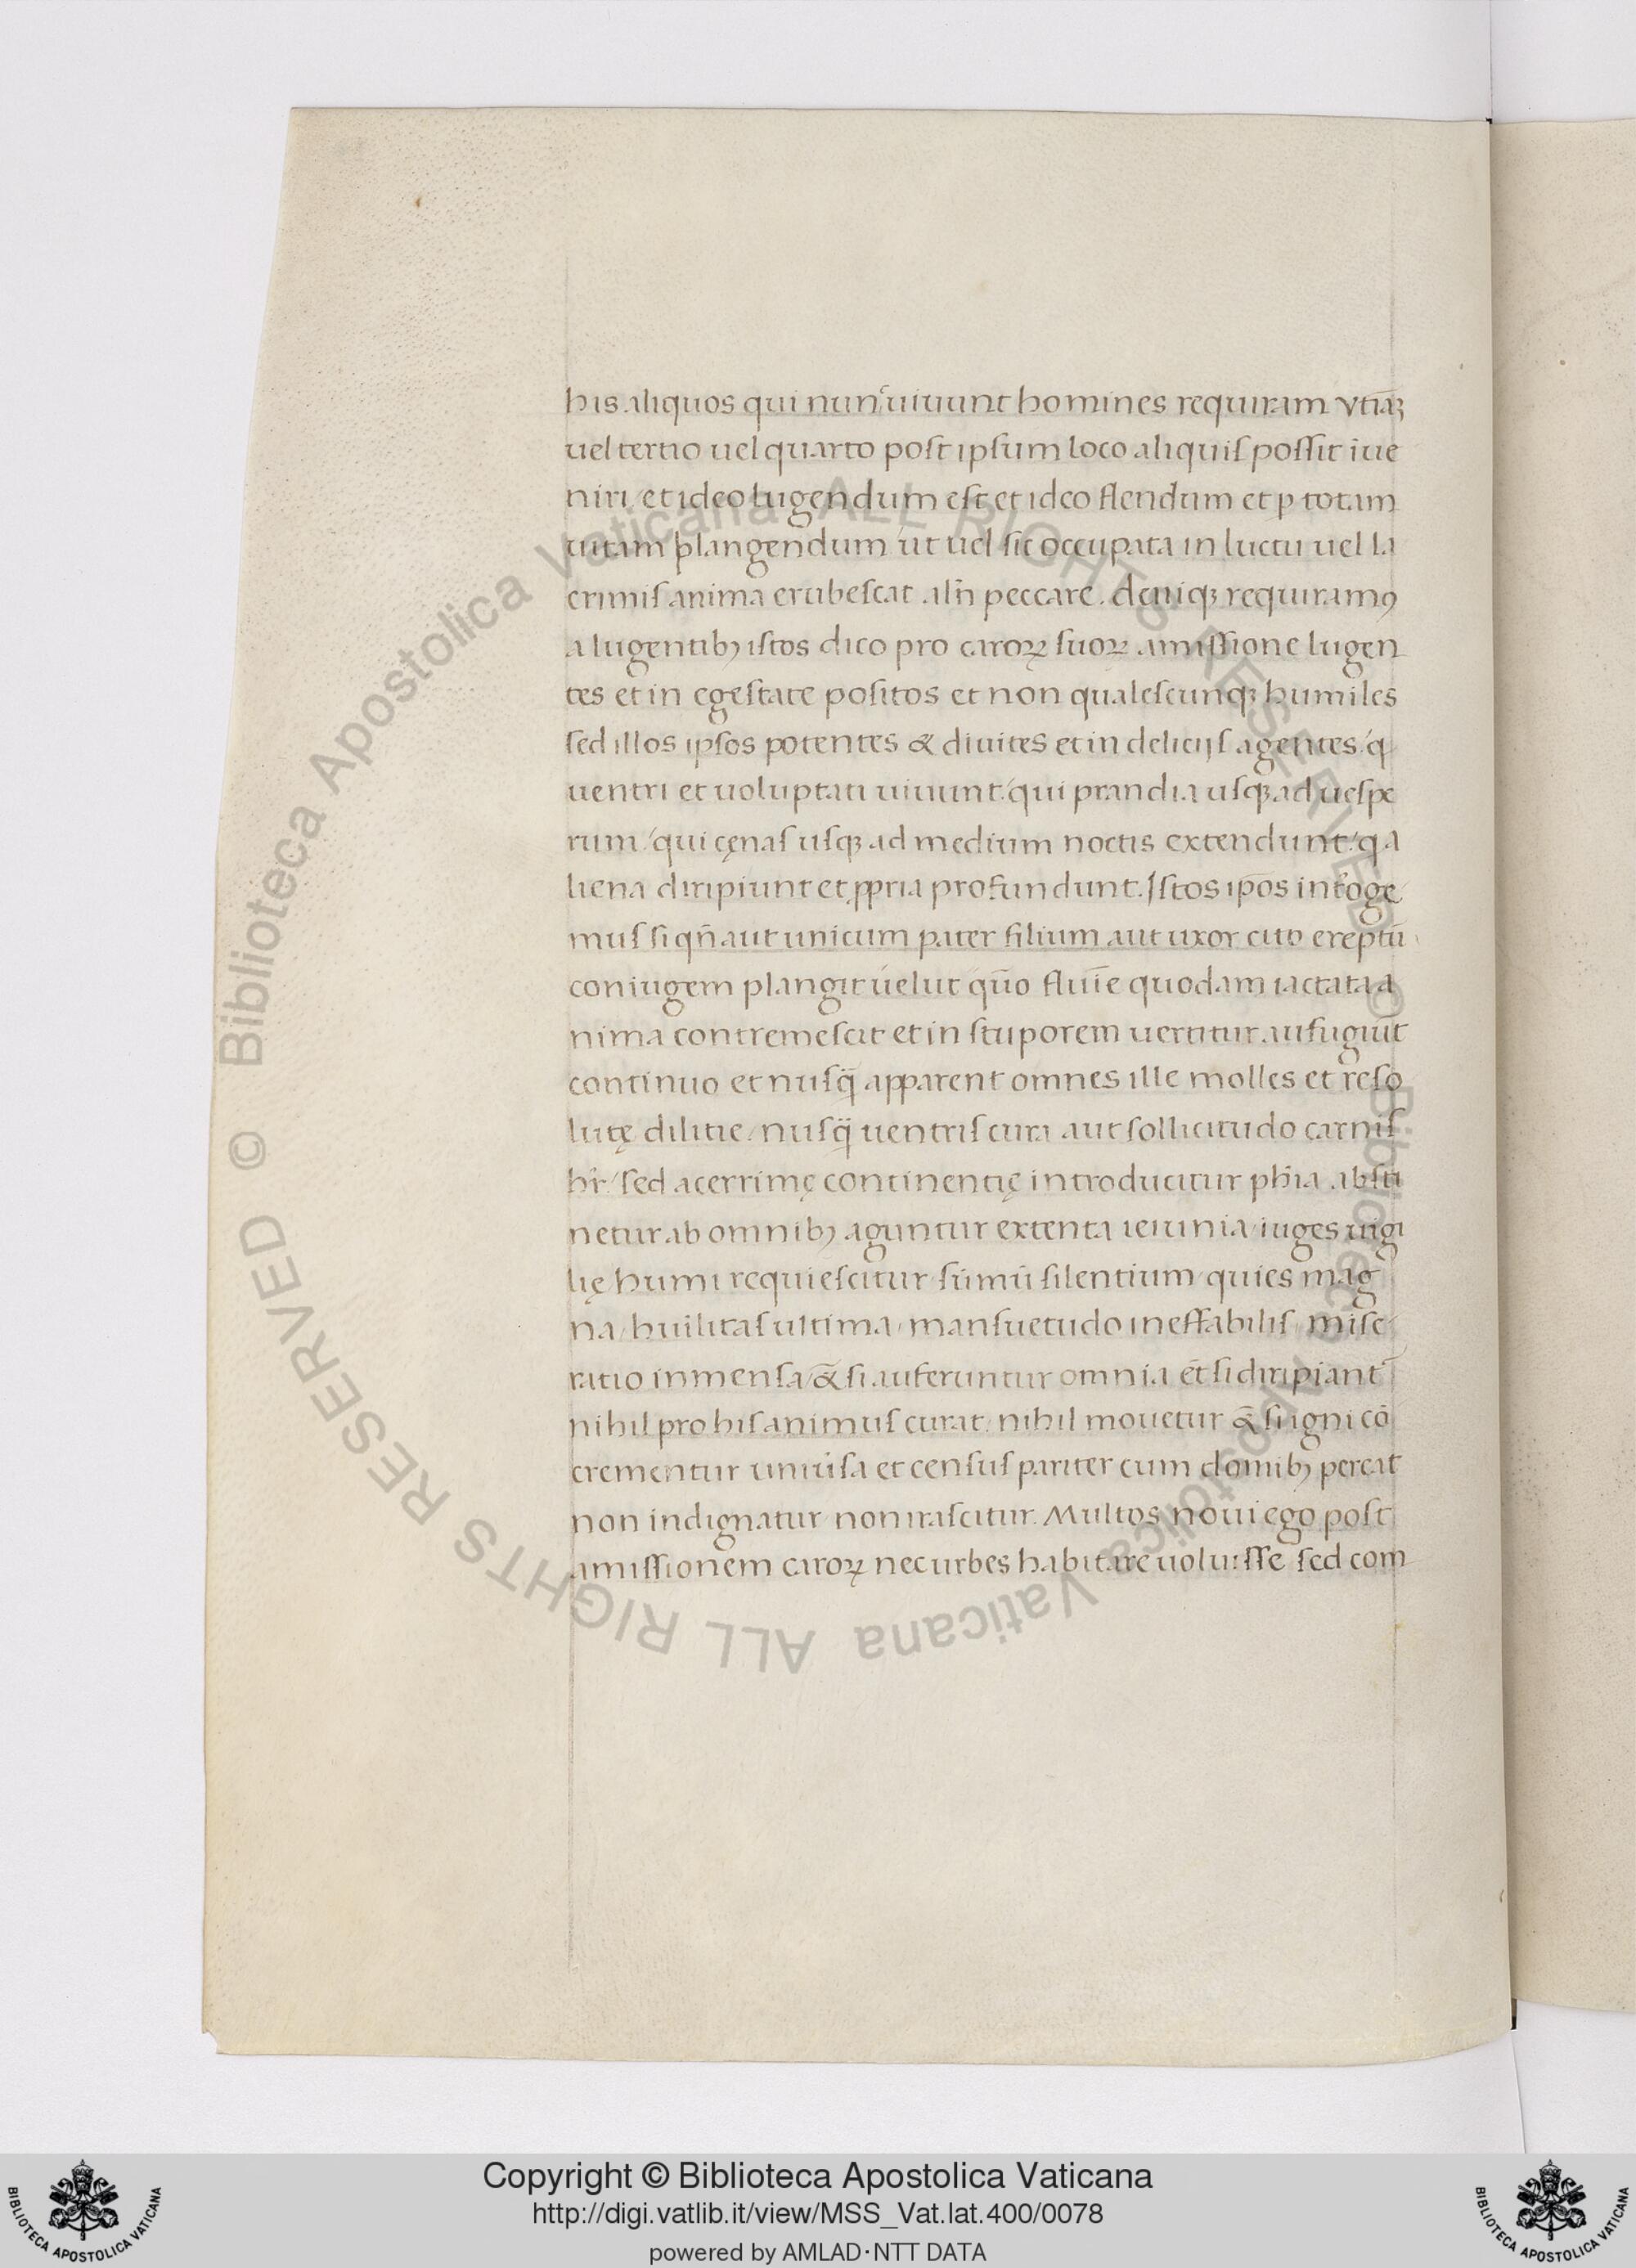 his aliquos qui nunc uiuunt homines requiram vtiāꝫ
uel tertio uel quarto poſt ipſum loco aliquiſ poſſit īue
niri / et ideo lugendum eſt et ideo flendum et ꝑ totam
uitam plangendum ut uel ſic occupata in luctu uel la
crimiſ anima erubeſcat aliñ peccare. deniqꝫ requiramꝰ
a lugentibꝫ iſtos dico pro caroꝝ ſuoꝝ amiſſione lugen
tes et in egeſtate poſitos et non qualeſcunqꝫ humiles
ſed illos ipſos potentes & diuites et in delicijſ agentes / q
uentri et uoluptati uiuunt / qui prandia uſqꝫ ad ueſpe
rum / qui cęnaſ uſqꝫ ad medium noctis extendunt / q a
liena diripiunt et ꝓpria profundunt. Iſtos ip̄os int̄oge
muſ ſi qn̄ aut unicum pater filium aut uxor cito ereptū
coniugem plangit uelut quō fluīe quodam iactata a
nima contremeſcit et in ſtuporem uertitur. aufugiūt
continuo et nuſq̄ apparent omnes ille molles et reſo
lutę dilitie / nuſq̄ uentriſ cura aut ſollicitudo carniſ
hr̄ / ſed acerrimę continentię introducitur ph̄ia abſti
netur ab omnibꝫ aguntur extenta ieiunia / iuges uigi
lię humi requieſcitur / ſūmū ſilentium / quies mag
na / hūilitaſ ultima / manſuetudo ineffabiliſ / miſe
ratio inmenſa / &̄ ſi auferuntur omnia et̄ ſi diripiant᷑
nihil pro hiſ animuſ curat / nihil mouetur &̄ ſi igni cō
crementur uniūſa et cenſuſ pariter cum domibꝫ pereat
non indignatur non iraſcitur. Multos noui ego poſt
amiſſionem caroꝝ nec urbes habitare uoluiſſe ſed com
© Biblioteca Apostolica Vaticana ALL RIGHTS RESERVED © Biblioteca Apostolica Vaticana ALL RIGHTS RESERVED
Copyright © Biblioteca Apostolica Vaticana
http://digi.vatlib.it/view/MSS_Vat.lat.400/0078
powered by AMLAD·NTT DATA
BIBLIOTECA APOSTOLICA VATICANA
BIBLIOTECA APOSTOLICA VATICANA